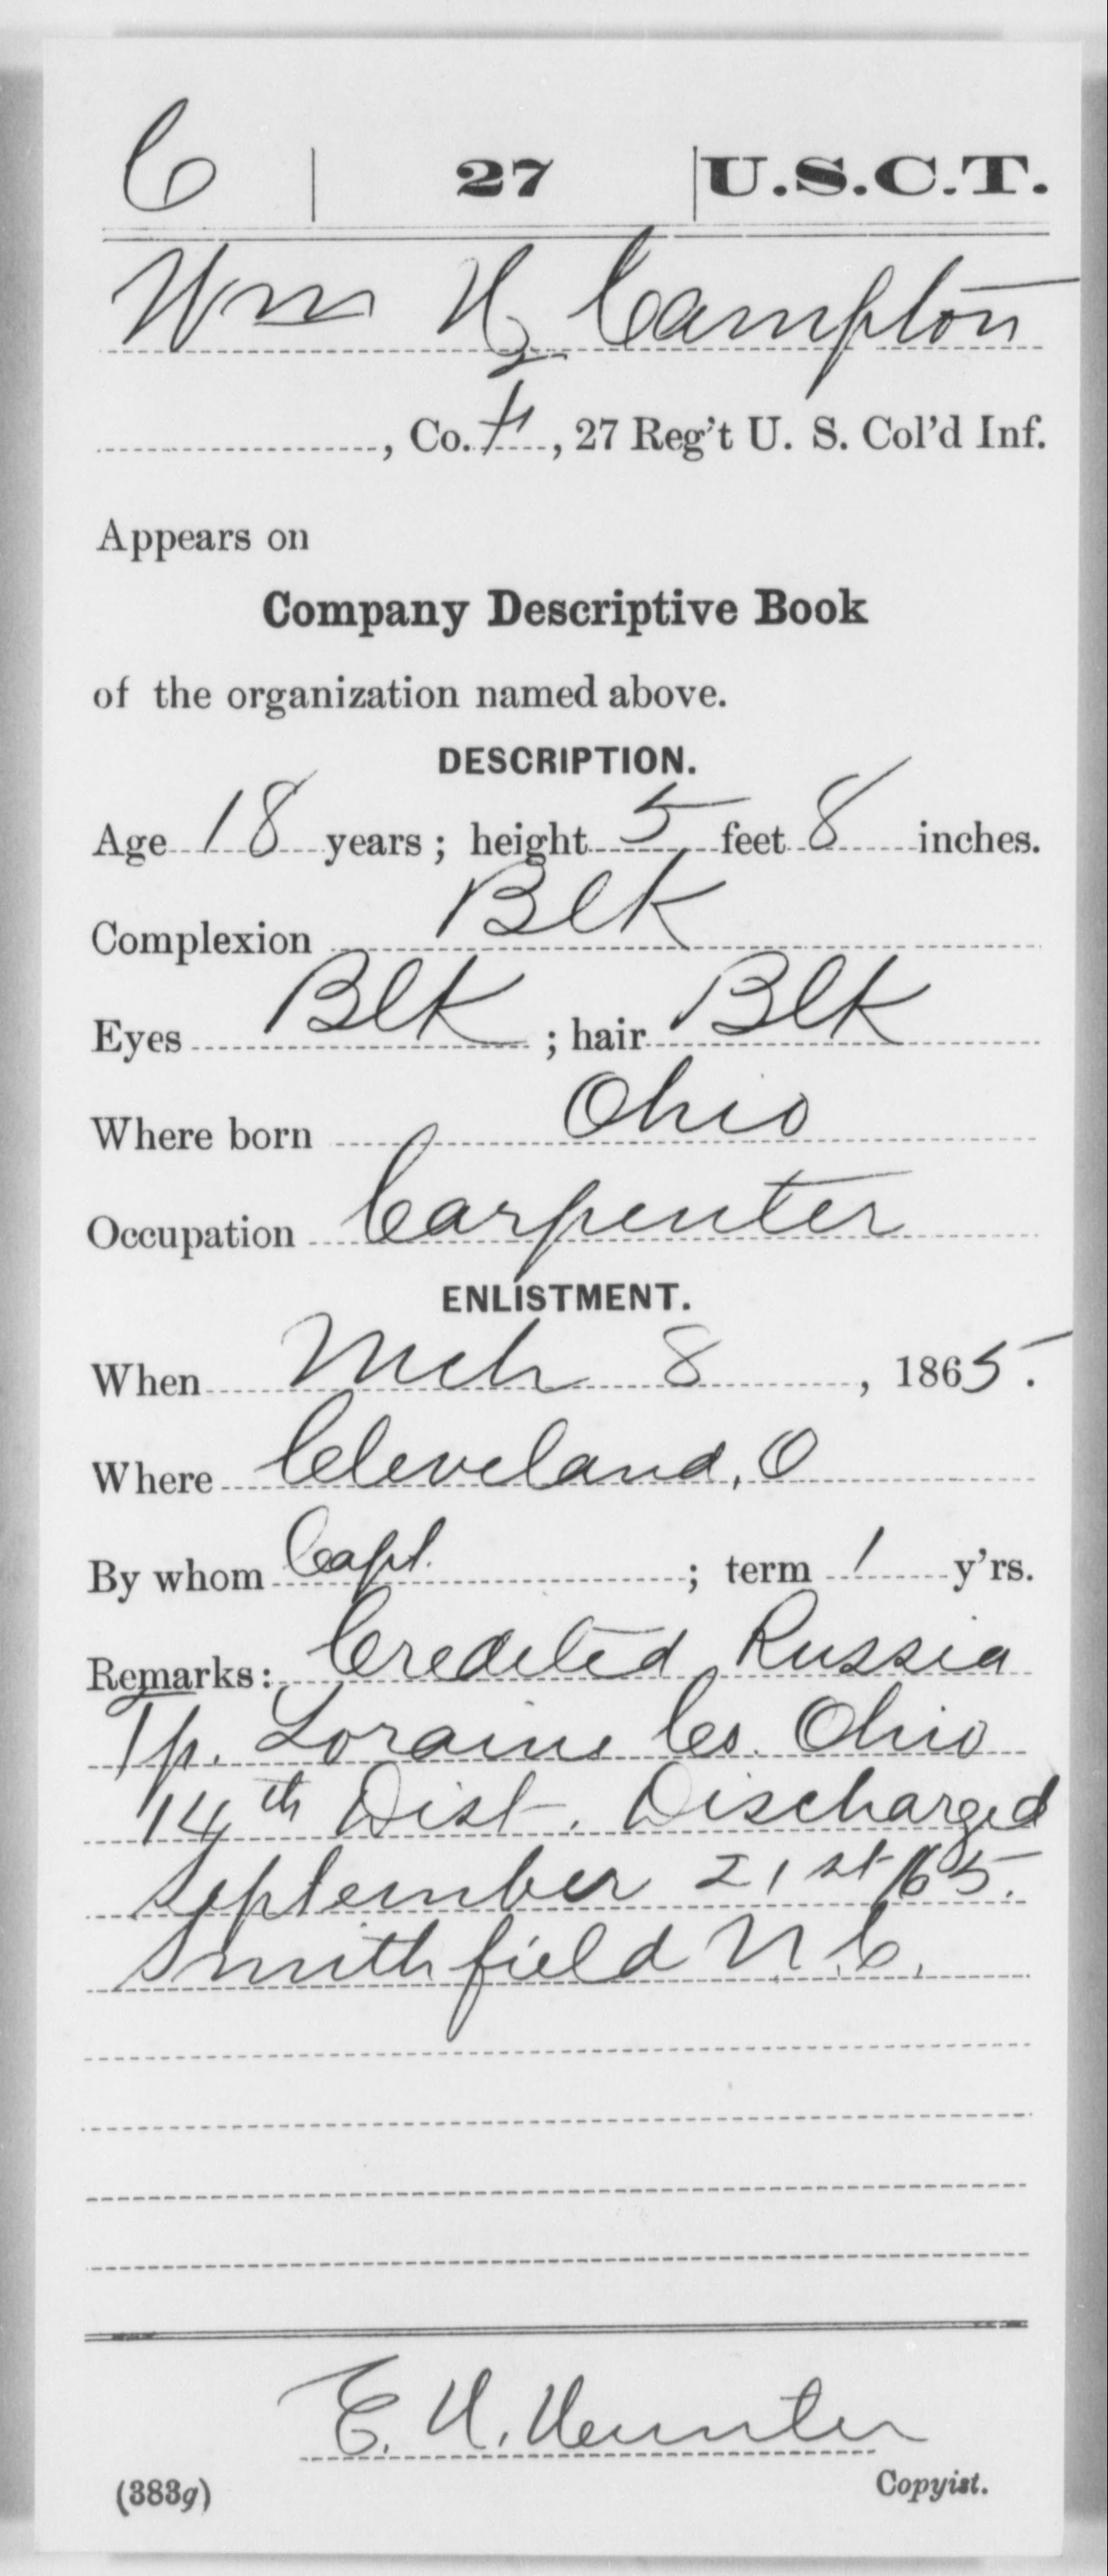 C | 27 | U.S.C.T.
Wm H Campton
, Co. , 27 Reg't U. S. Col'd Inf.
Appears on
Company Descriptive Book
of the organization named above.
DESCRIPTION.
Age 18 years; height 5 feet 8 inches.
Complexion Blk
Eyes Blk; hair Blk
Where born Ohio
Occupation Carpenter
ENLISTMENT.
When Mch 8, 1865.
Where Cleveland, O
By whom Capt. ; term 1 y'rs.
Remarks: Credited Russia
Tp. Loraine Co. Ohio
14th Dist. Discharged
September 21st /65.
Smithfield N.C.
E. H.
Copyist.
(383g)